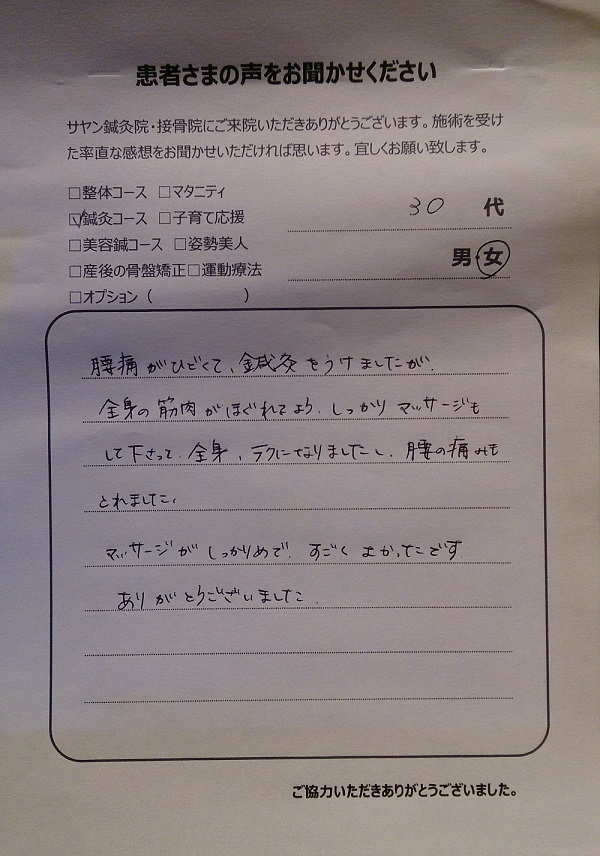 患者さまの声をお聞かせください
サヤン鍼灸院・接骨院にご来院いただきありがとうございます。施術を受け
た率直な感想をお聞かせいただければ思います。宜しくお願い致します。
□整体コース □マタニティ
☑鍼灸コース □子育て応援
□美容鍼コース □姿勢美人
□産後の骨盤矯正□運動療法
□オプション（ ）
30 代
男・女
腰痛がひどくて、鍼灸をうけましたが、
全身の筋肉がほぐれてよう、しっかりマッサージも
して下さって、全身、ラクになりましたし、腰の痛みも
とれました。
マッサージがしっかりめで、すごくよかったです
ありがとうございました。
ご協力いただきありがとうございました。